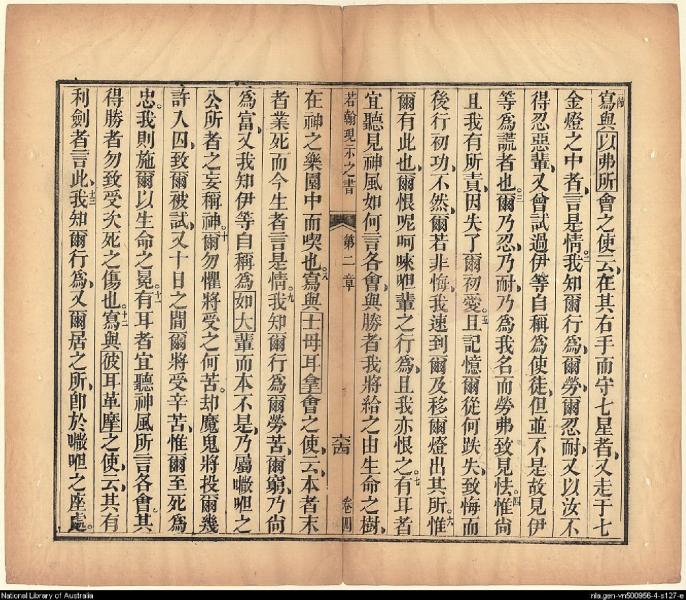 寫與以弗所會之使云在其右手而守七星者又走于七
金燈之中者言是情我知爾行爲爾勞爾忍耐又以汝不
得忍惡輩又曾試過伊等自稱爲使徒但並不是故見伊
等爲謊者也三爾乃忍乃耐乃爲我名而勞弗致見怯四惟尙
且我有所責因失了爾初愛五且記憶爾從何跌失致悔而
後行初功不然爾若非悔我速到爾及移爾燈出其所六惟
爾有此也爾恨呢呵唻呾輩之行爲且我亦恨之七有耳者
宜聽見神風如何言各會與勝者我將給之由生命之樹
若翰現示之書 第二章 卷四
在神之樂園中而喫也八寫與士每耳拿會之使云本者末
者業死而今生者言是情九我知爾行爲爾勞苦爾窮乃尙
爲富又我知伊等自稱爲如大輩而本不是乃屬㘔呾之
公所者之妄稱神十爾勿懼將受之何苦却魔鬼將投爾幾
許人囚致爾被試又十日之間爾將受辛苦惟爾至死爲
忠我則施爾以生命之冕十一有耳者宜聽神風所言各會其
得勝者勿致受次死之傷也十二寫與彼耳革摩之使云其有
利劍者言此十三我知爾行爲又爾居之所卽於㘔呾之座處
National Library of Australia
nla.gen-vn500956-4-s127-e